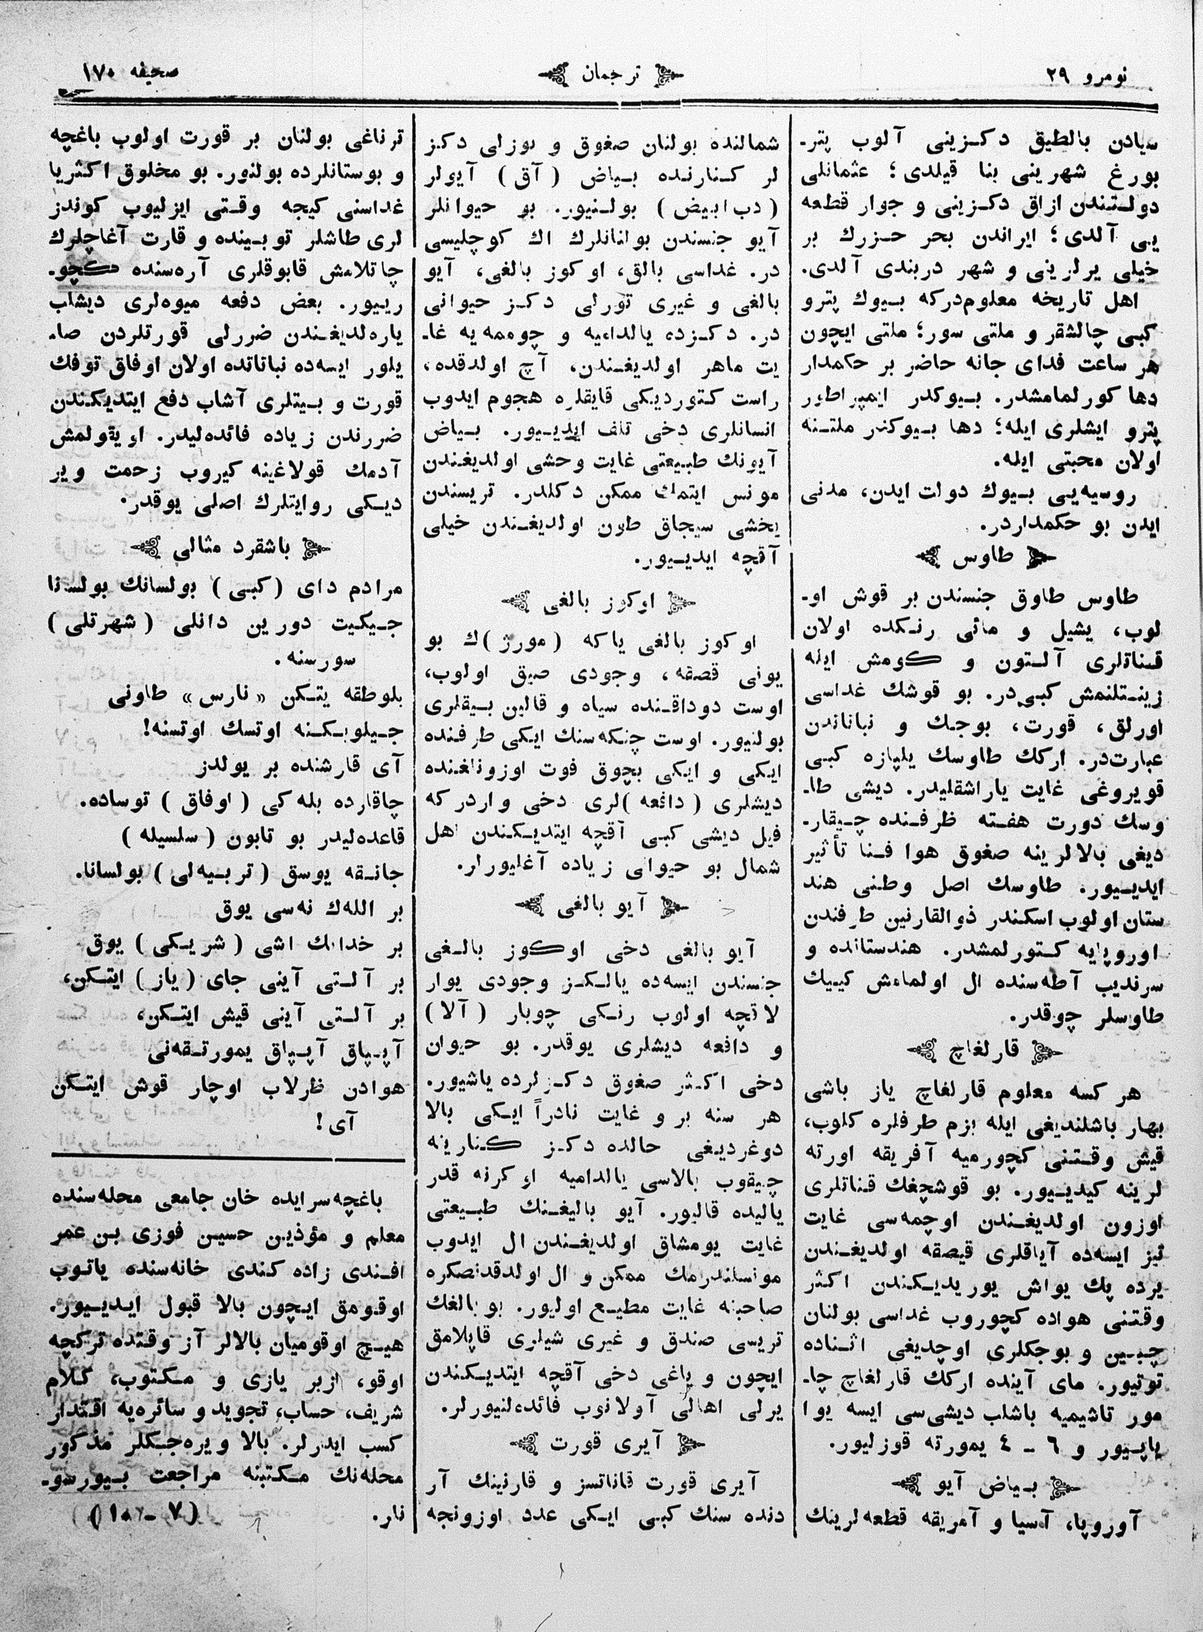 نومرو ٢٩
ترجمان
صحيفه ١٧٠
سيادن بالطيق دكزينى آلوب پتر-
بورغ شهرينى بنا قيلدى؛ عثمانلى
دولتندن ازاق دكزينى و جوار قطعه
يى آلدى؛ ايراندن بحر حزرك بر
خيلى يرلرينى و شهر دربندى آلدى.
اهل تاريخه معلوم‌دركه بيوك پترو
كبى چالشقر و ملتى سور؛ ملتى ايچون
هر ساعت فداى جانه حاضر بر حكمدار
دها كورلمامشدر. بيوكدر ايمپراطور
پترو ايشلرى ايله؛ دها بيوكدر ملتنه
اولان محبتى ايله.
روسيه‌يى بيوك دولت ايدن، مدنى
ايدن بو حكمداردر.
طاوس
طاوس طاوق جنسندن بر قوش او-
لوب، يشيل و مائى رنكده اولان
قناتلرى آلتون و كومش ايله
زينتلنمش كبى‌در. بو قوشك غداسى
اورلق، قورت، بوجك و نباتاتدن
عبارت‌در. ارك طاوسك يلپازه كبى
قويروغى غايت ياراشقليدر. ديشى طا-
وسك دورت هفته ظرفنده چيقار-
ديغى بالالرينه صغوق هوا فنا تأثير
ايديور. طاوسك اصل وطنى هند
ستان اولوب اسكندر ذوالقارنين طرفندن
اوروپايه كتورلمشدر. هندستانده و
سرنديب آطه‌سنده ال اولمامش كييك
طاوسلر چوقدر.
قارلغاچ
هر كسه معلوم قارلغاچ ياز باشى
بهار باشلنديغى ايله بزم طرفلره كلوب،
قيش وقتنى كچورميه آفريقه اورته
لرينه كيديور. بو قوشچغك قناتلرى
اوزون اولديغندن اوچمه‌سى غايت
تيز ايسه‌ده آياقلرى قيصقه اولديغندن
يرده پك يواش يوريديكندن اكثر
وقتنى هواده كچوروب غداسى بولنان
چبين و بوجكلرى اوچديغى اثناده
توتيور. ماى آينده ارك قارلغاچ چا-
مور تاشيميه باشلب ديشى‌سى ايسه يوا
ياپيور و ٦ - ٤ يمورته قوزليور.
بياض آيو
آوروپا، آسيا و آمريقه قطعه‌لرينك
شمالنده بولنان صغوق و بوزلى دكز
لر كنارنده بياض (آق) آيولر
(دب ابيض) بولنيور. بو حيوانلر
آيو جنسندن بوانانلرك اك كوچليسى
در. غداسى بالق، اوكوز بالغى، آيو
بالغى و غيرى تورلى دكز حيوانى
در. دكزده يالداميه و چوممه‌يه غا-
يت ماهر اولديغندن، آچ اولدقده،
راست كتورديكى قايقلره هجوم ايدوب
انسانلرى دخى تلف ايديور. بياض
آيونك طبيعتى غايت وحشى اولديغندن
مونس ايتمك ممكن دكلدر. تريسندن
يخشى سيجاق طون اولديغندن خيلى
آقچه ايديور.
اوكوز بالغى
اوكوز بالغى ياكه (مورژ)ك بو
يونى قصقه، وجودى صيق اولوب،
اوست دوداقنده سياه و قالين بيقلرى
بولنيور. اوست چنكه‌سنك ايكى طرفنده
ايكى و ايكى بچوق فوت اوزونلغنده
ديشلرى (دافعه)لرى دخى واردركه
فيل ديشى كبى آقچه ايتديكندن اهل
شمال بو حيوانى زياده آغليورلر.
آيو بالغى
آيو بالغى دخى اوكوز بالغى
جنسندن ايسه‌ده يالكز وجودى يوار
لاقچه اولوب رنكى چوبار (آلا)
و دافعه ديشلرى يوقدر. بو حيوان
دخى اكثر صغوق دكزلرده ياشيور.
هر سنه بر و غايت نادراً ايكى بالا
دوغرديغى حالده دكز كنارينه
چيقوب بالاسى يالداميه اوكرنه قدر
ياليده قاليور. آيو باليغنك طبيعتى
غايت يومشاق اولديغندن ال ايدوب
موانساندرمك ممكن و ال اولدقدنصكره
صاحبنه غايت مطيع اوليور. بو بالغك
تريسى صندق و غيرى شيلرى قاپلامق
ايچون و ياغى دخى آقچه ايتديكندن
يرلى اهالى آولانوب فائده‌لنيورلر.
آيرى قورت
آيرى قورت قاناتسز و قارنينك آر
دنده سنك كبى ايكى عدد اوزونجه
ترناغى بولنان بر قورت اولوب باغچه
و بوستانلرده بولنور. بو مخلوق اكثريا
غداسنى كيجه وقتى ايزليوب كوندز
لرى طاشلر توبينده و قارت آغاچلرك
چاتلامش قابوقلرى آره‌سنده كچو-
ريور. بعض دفعه ميوه‌لرى ديشلب
ياره‌لديغندن ضررلى قورتلردن صا-
يلور ايسه‌ده نباتاتده اولان اوفاق توفك
قورت و بيتلرى آشاب دفع ايتديكندن
ضررندن زياده فائده‌ليدر. اويقولمش
آدمك قولاغينه كيروب زحمت وير
ديكى روايتلرك اصلى يوقدر.
باشقرد مثالى
مرادم داى (كبى) بولسانك بولسنا
جيكيت دورين دانلى (شهرتلى)
سورسنه.
بلوطقه يتكن «نارس» طاونى
جيلوبكنه اوتسك اوتسنه!
آى قارشنده بر يولدز
چاقارده بله‌كى (اوفاق) توساده.
قاعده‌ليدر بو تابون (سلسيله)
جانقه يوسق (تربيه‌لى) بولسانا.
بر الله‌ك نه‌سى يوق
بر خدانك اشى (شريكى) يوق
بر آلتى آينى جاى (ياز) ايتكن،
بر آلتى آينى قيش ايتكن،
آپپاق آپپاق يمورتقه‌نى
هوادن ظرلاب اوچار قوش ايتكن
آى!
باغچه‌سرايده خان جامعى محله‌سنده
معلم و مؤذين حسين فوزى بن عمر
افندى زاده كندى خانه‌سنده ياتوب
اوقومق ايچون بالا قبول ايديور.
هيچ اوقوميان بالالر آز وقتده تركچه
اوقو، ازبر يازى و مكتوب، كلام
شريف، حساب، تجويد و سائره‌يه اقتدار
كسب ايدرلر. بالا ويره‌جكلر مذكور
محله‌نك مكتبنه مراجعت بيورسو-
نلر.